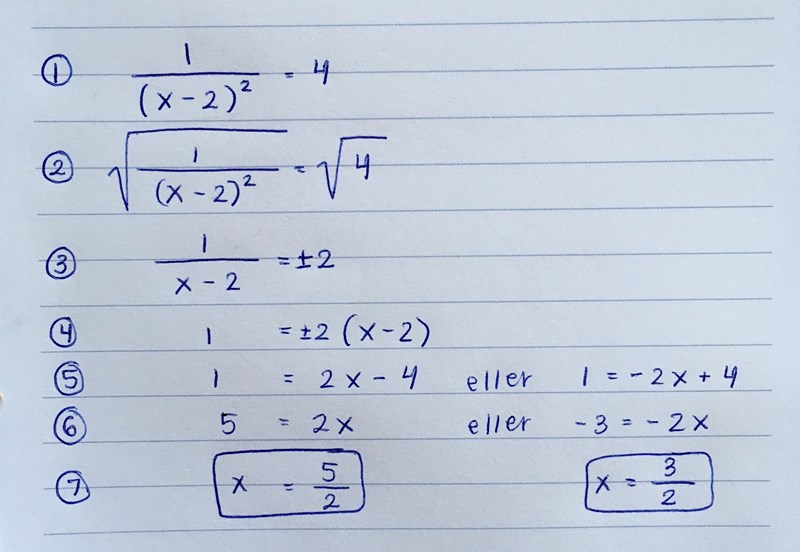 ① 1/(x-2)² = 4
② √(1/(x-2)²) = √4
③ 1/(x-2) = ±2
④ 1 = ±2(x-2)
⑤ 1 = 2x-4 eller 1 = -2x+4
⑥ 5 = 2x eller -3 = -2x
⑦ x = 5/2 x = 3/2